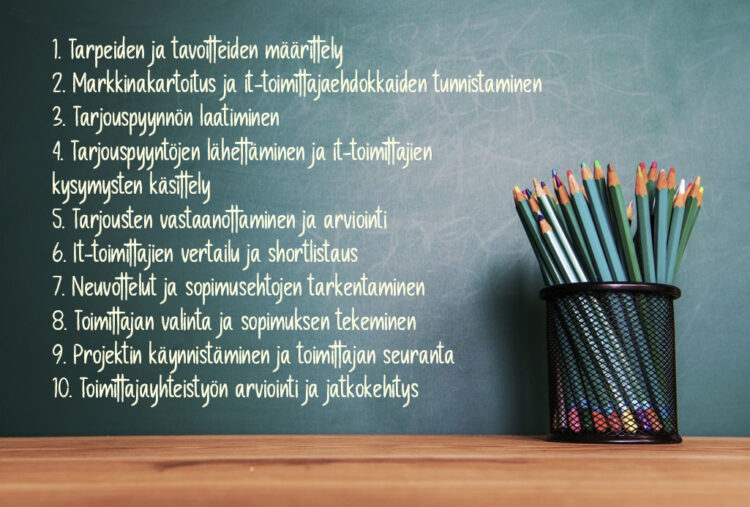 1. Tarpeiden ja tavoitteiden määrittely
2. Markkinakartoitus ja it-toimittajaehdokkaiden tunnistaminen
3. Tarjouspyynnön laatiminen
4. Tarjouspyyntöjen lähettäminen ja it-toimittajien
kysymysten käsittely
5. Tarjousten vastaanottaminen ja arviointi
6. It-toimittajien vertailu ja shortlistaus
7. Neuvottelut ja sopimusehtojen tarkentaminen
8. Toimittajan valinta ja sopimuksen tekeminen
9. Projektin käynnistäminen ja toimittajan seuranta
10. Toimittajayhteistyön arviointi ja jatkokehitys